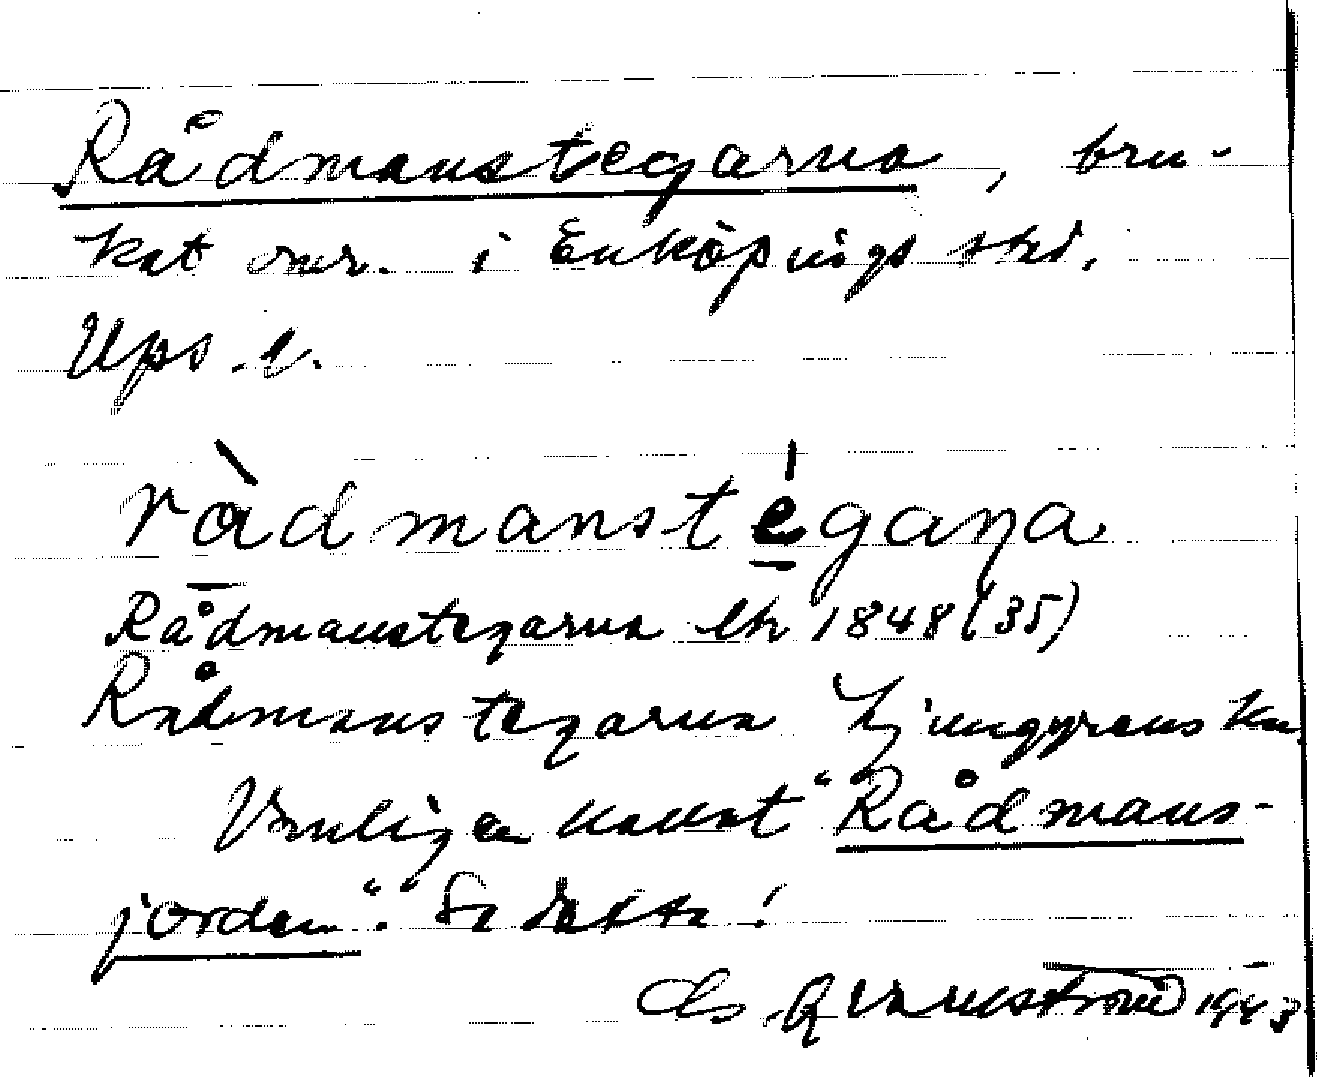 Rådmanstegarna, bru-
kat omr. i Enköpings std.
Ups. l.
ràdmanstégaṇa
Rådmanstegarna lk 1848 (35)
Rådmanstegarna Ljunggrens ka
Vanligen kallat "Rådmans-
jorden". Se detta!
1943